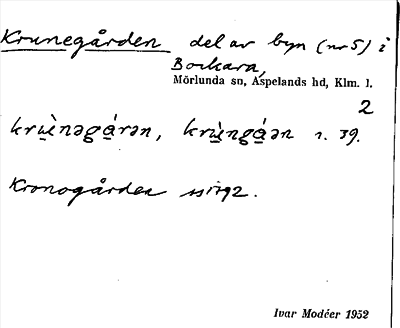 Krunegården del av byn (nr 5) i
Bockara,
Mörlunda sn, Aspelands hd, Klm. l.
2
krùnəgárən, krùngáən 1. 39.
Kronogården 1792.
Ivar Modéer 1952